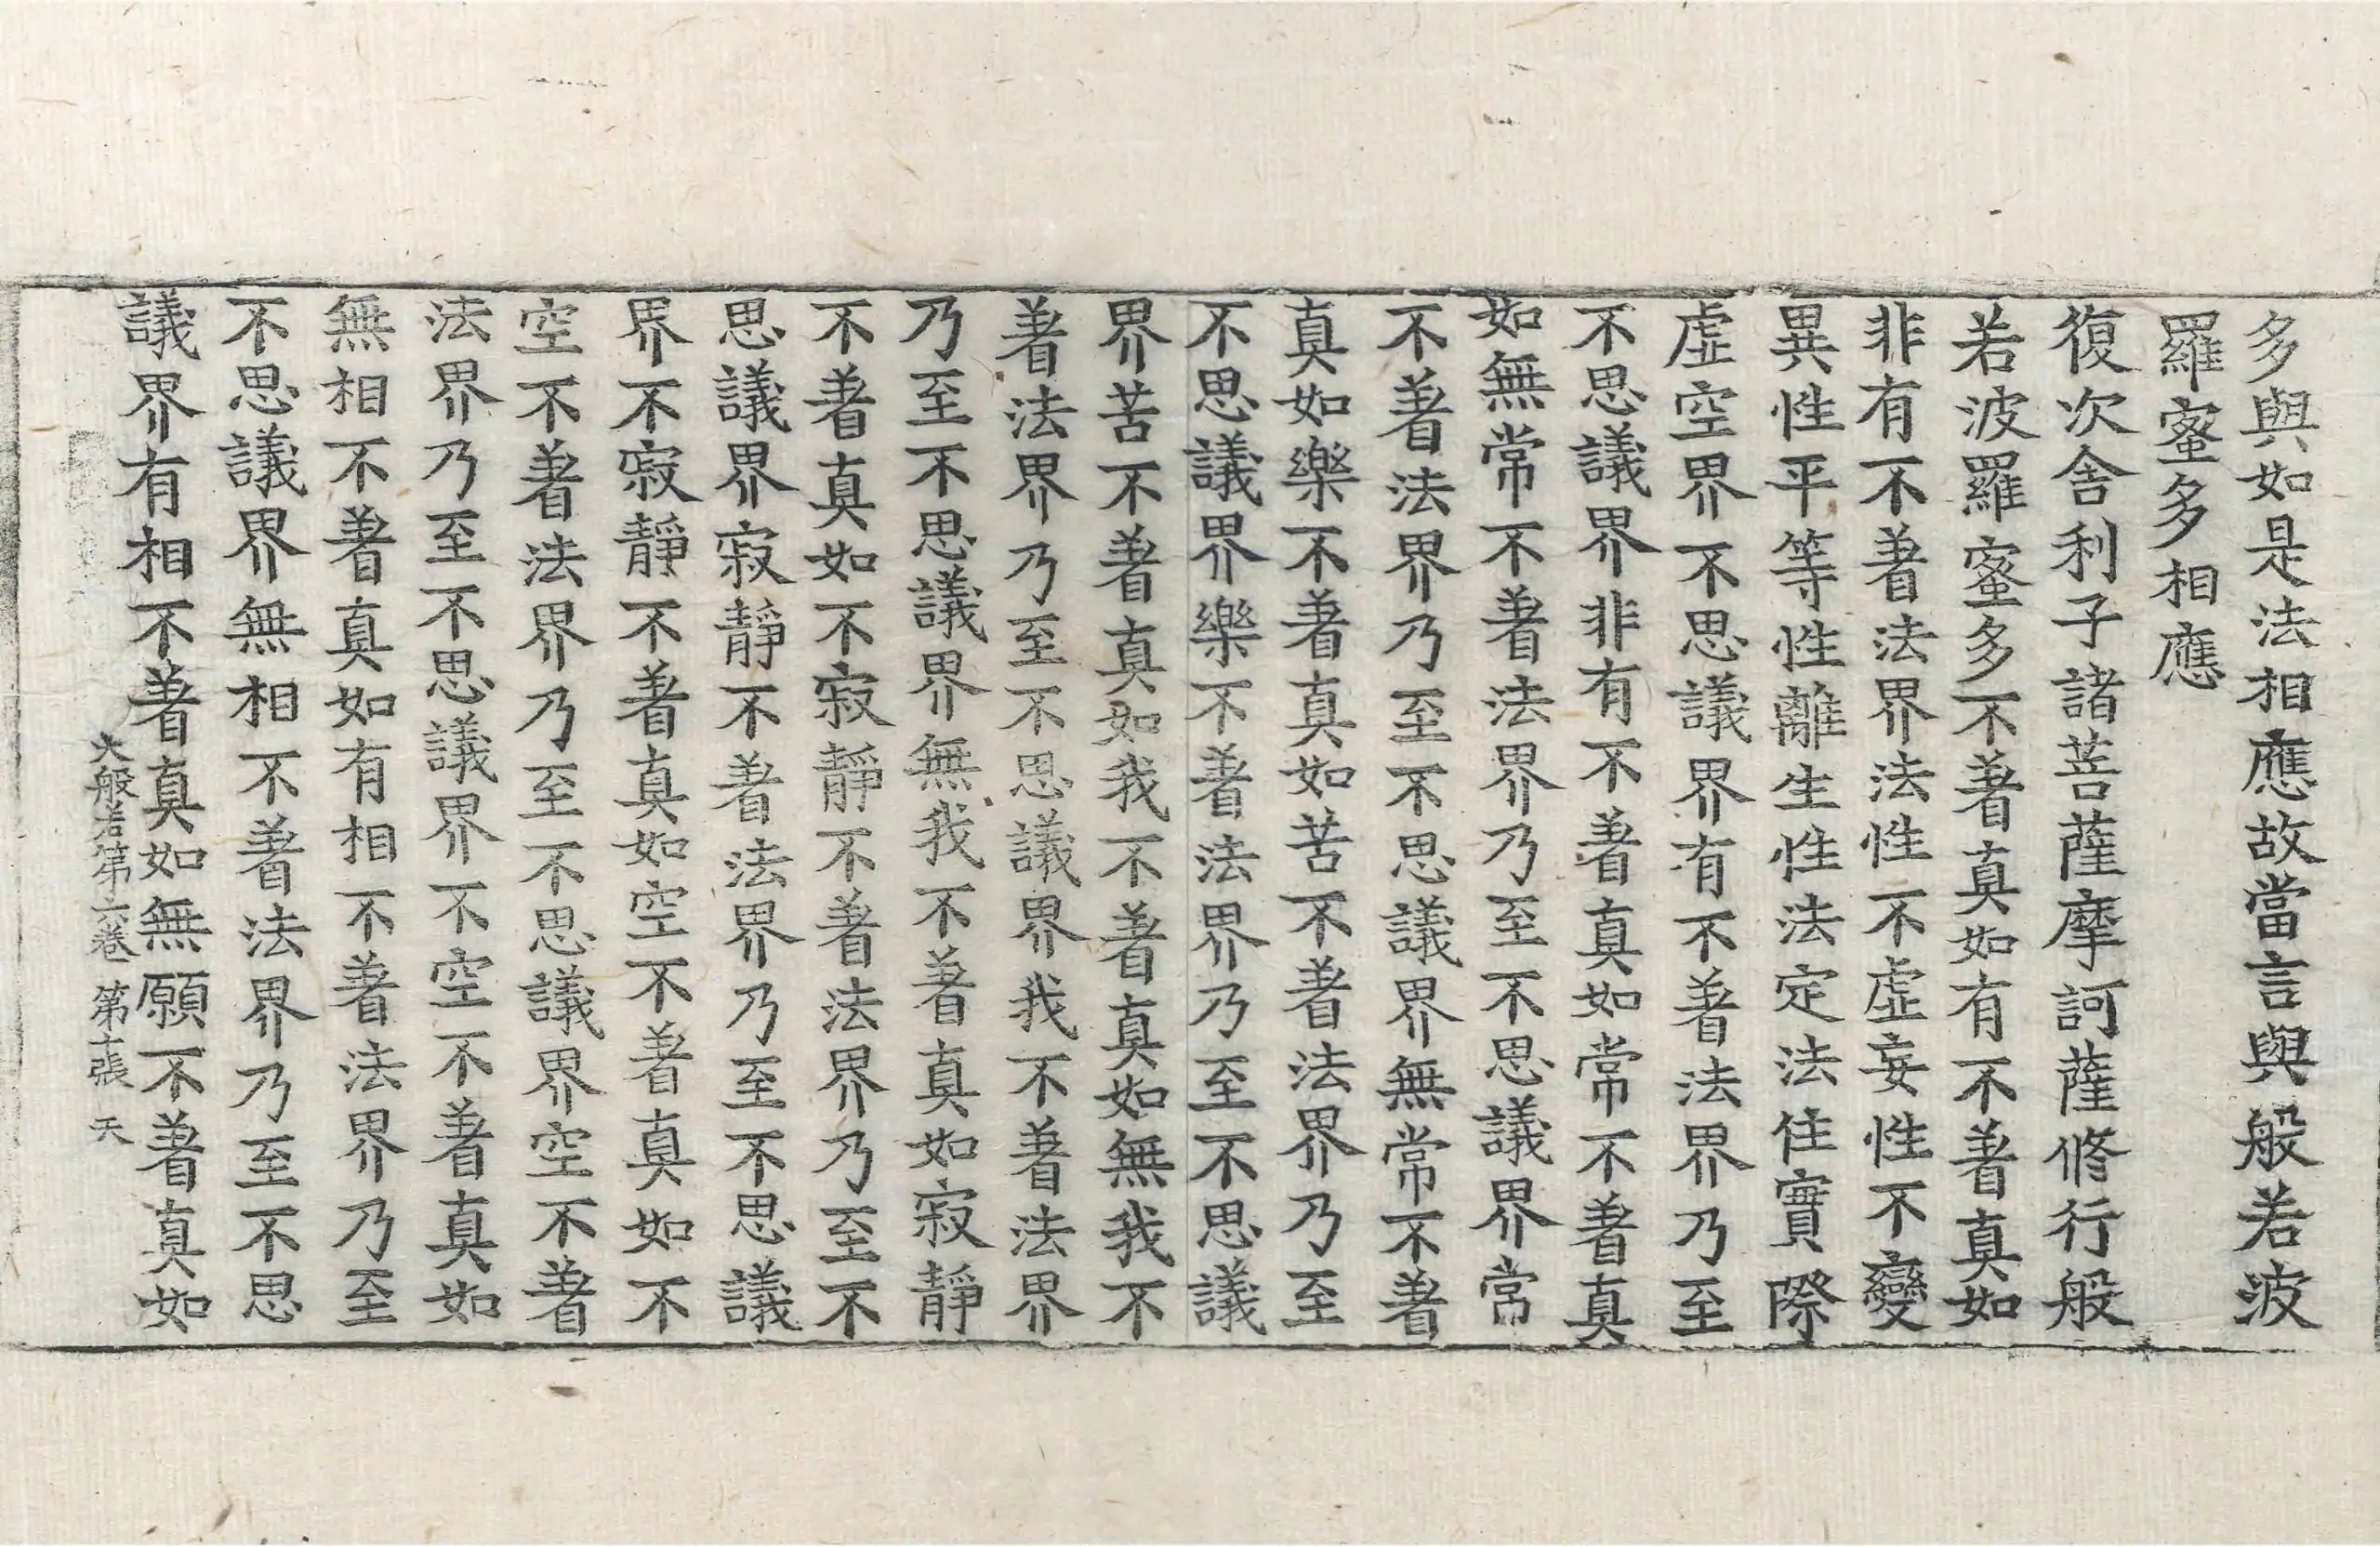 多與如是法相應故當言與般若波
羅蜜多相應
復次舍利子諸菩薩摩訶薩修行般
若波羅蜜多不著真如有不著真如
非有不著法界法性不虛妄性不變
異性平等性離生性法定法住實際
虛空界不思議界有不著法界乃至
不思議界非有不著真如常不著真
如無常不著法界乃至不思議界常
不著法界乃至不思議界無常不著
真如樂不著真如苦不著法界乃至
不思議界樂不著法界乃至不思議
界苦不著真如我不著真如無我不
著法界乃至不思議界我不著法界
乃至不思議界無我不著真如寂靜
不著真如不寂靜不著法界乃至不
思議界寂靜不著法界乃至不思議
界不寂靜不著真如空不著真如不
空不著法界乃至不思議界空不著
法界乃至不思議界不空不著真如
無相不著真如有相不著法界乃至
不思議界無相不著法界乃至不思
議界有相不著真如無願不著真如
大般若第六卷 第十張 天